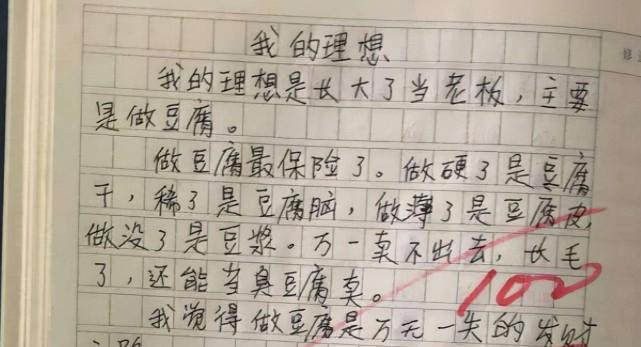 我的理想
我的理想是长大了当老板,主要
是做豆腐。
做豆腐最保险了。做硬了是豆腐
干,稀了是豆腐脑,做薄了是豆腐皮,
做没了是豆浆。万一卖不出去,长毛
了,还能当臭豆腐卖。
100
我觉得做豆腐是万无一失的发财